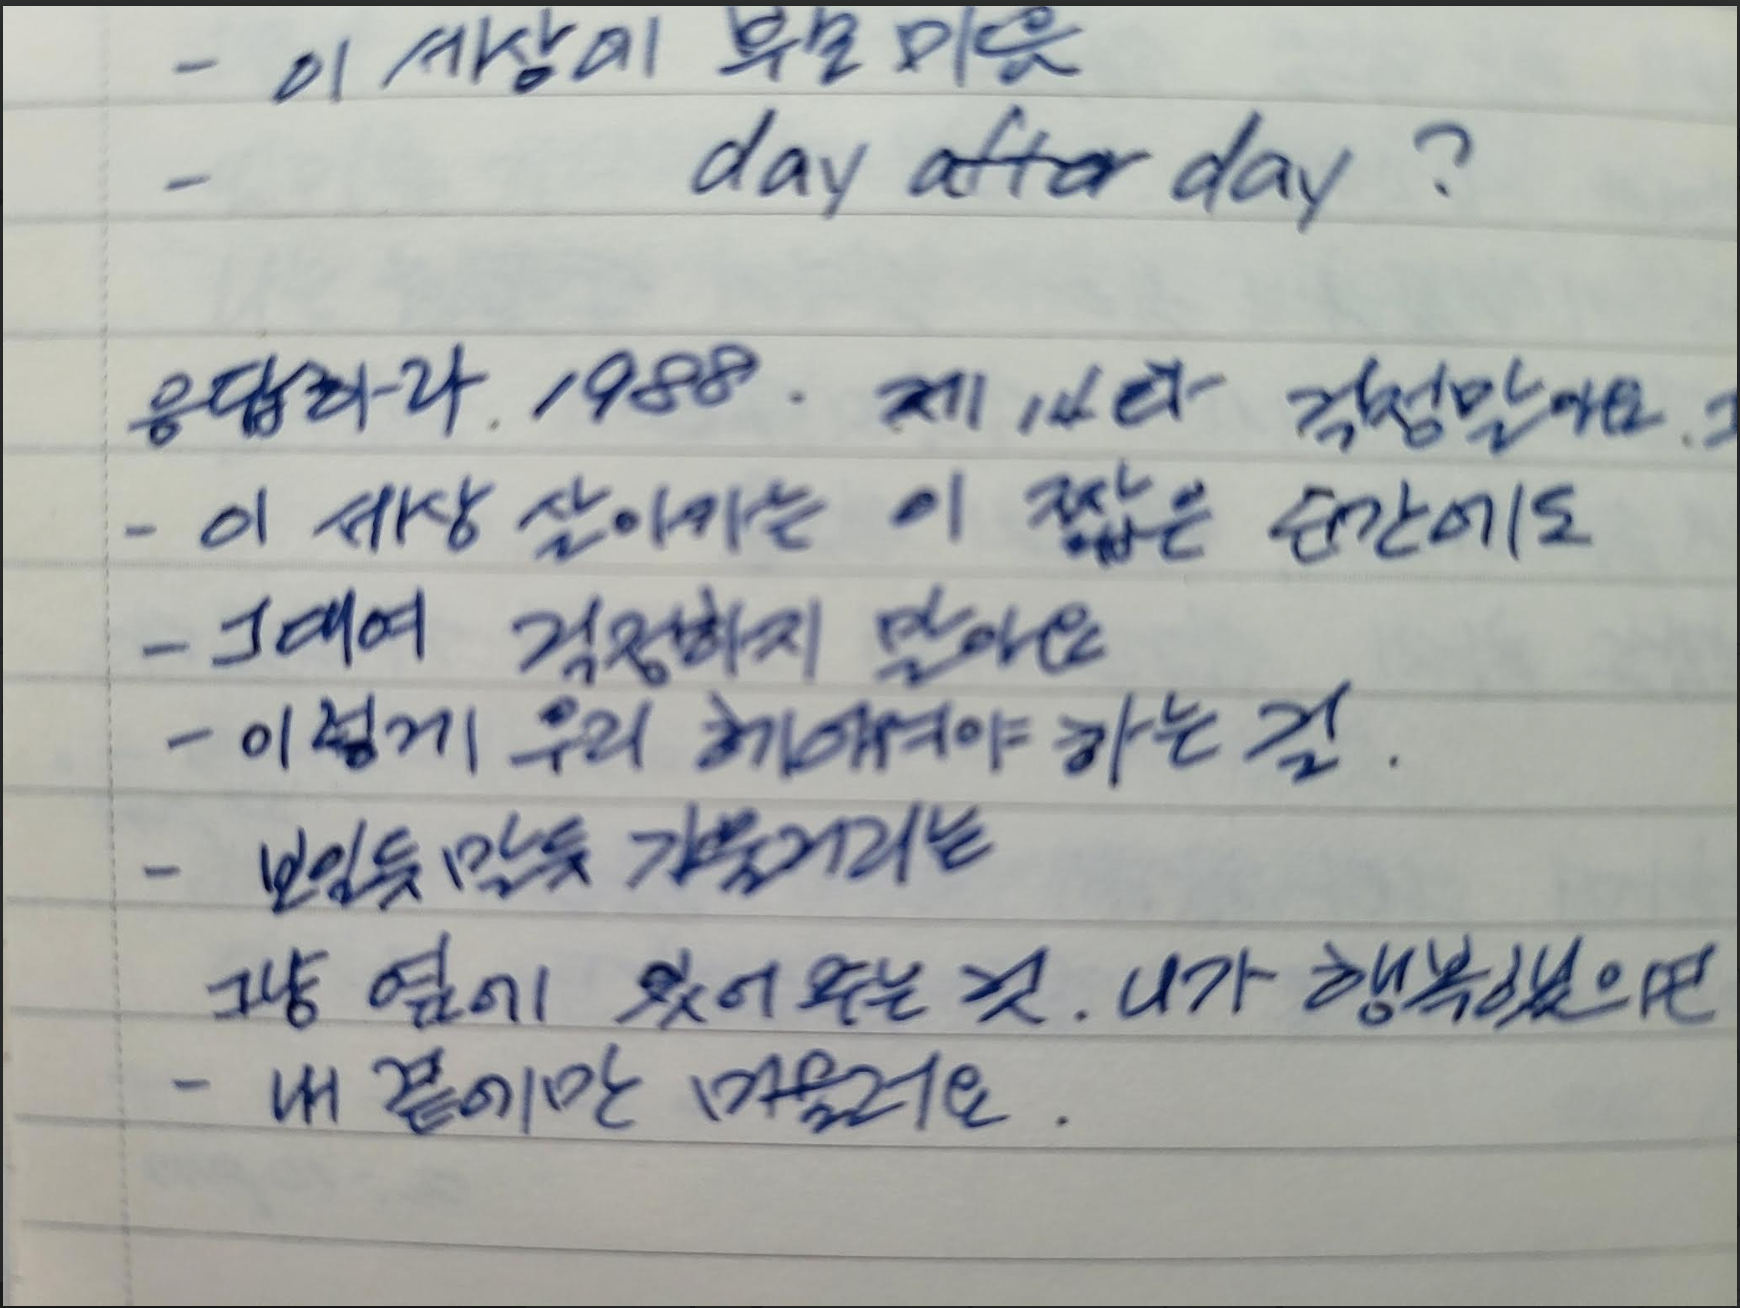 - 이 세상에 부모 마음
- day after day ?
응답하라. 1988. 제 14화 걱정말아요. 그
- 이 세상 살아가는 이 짧은 순간에도
- 그대여 걱정하지 말아요
- 이렇게 우리 헤어져야 하는 걸.
- 보일듯 말듯 가물거리는
그냥 옆에 있어 주는 것. 니가 행복했으면
- 내 곁에만 머물러요.